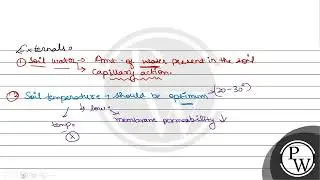 Externals
① Soil water → Amt. of water present in the soil
Capillary action.
② Soil temperature → should be optimum → (20-30°)
low
temp membrane permeability ↓
x
PW